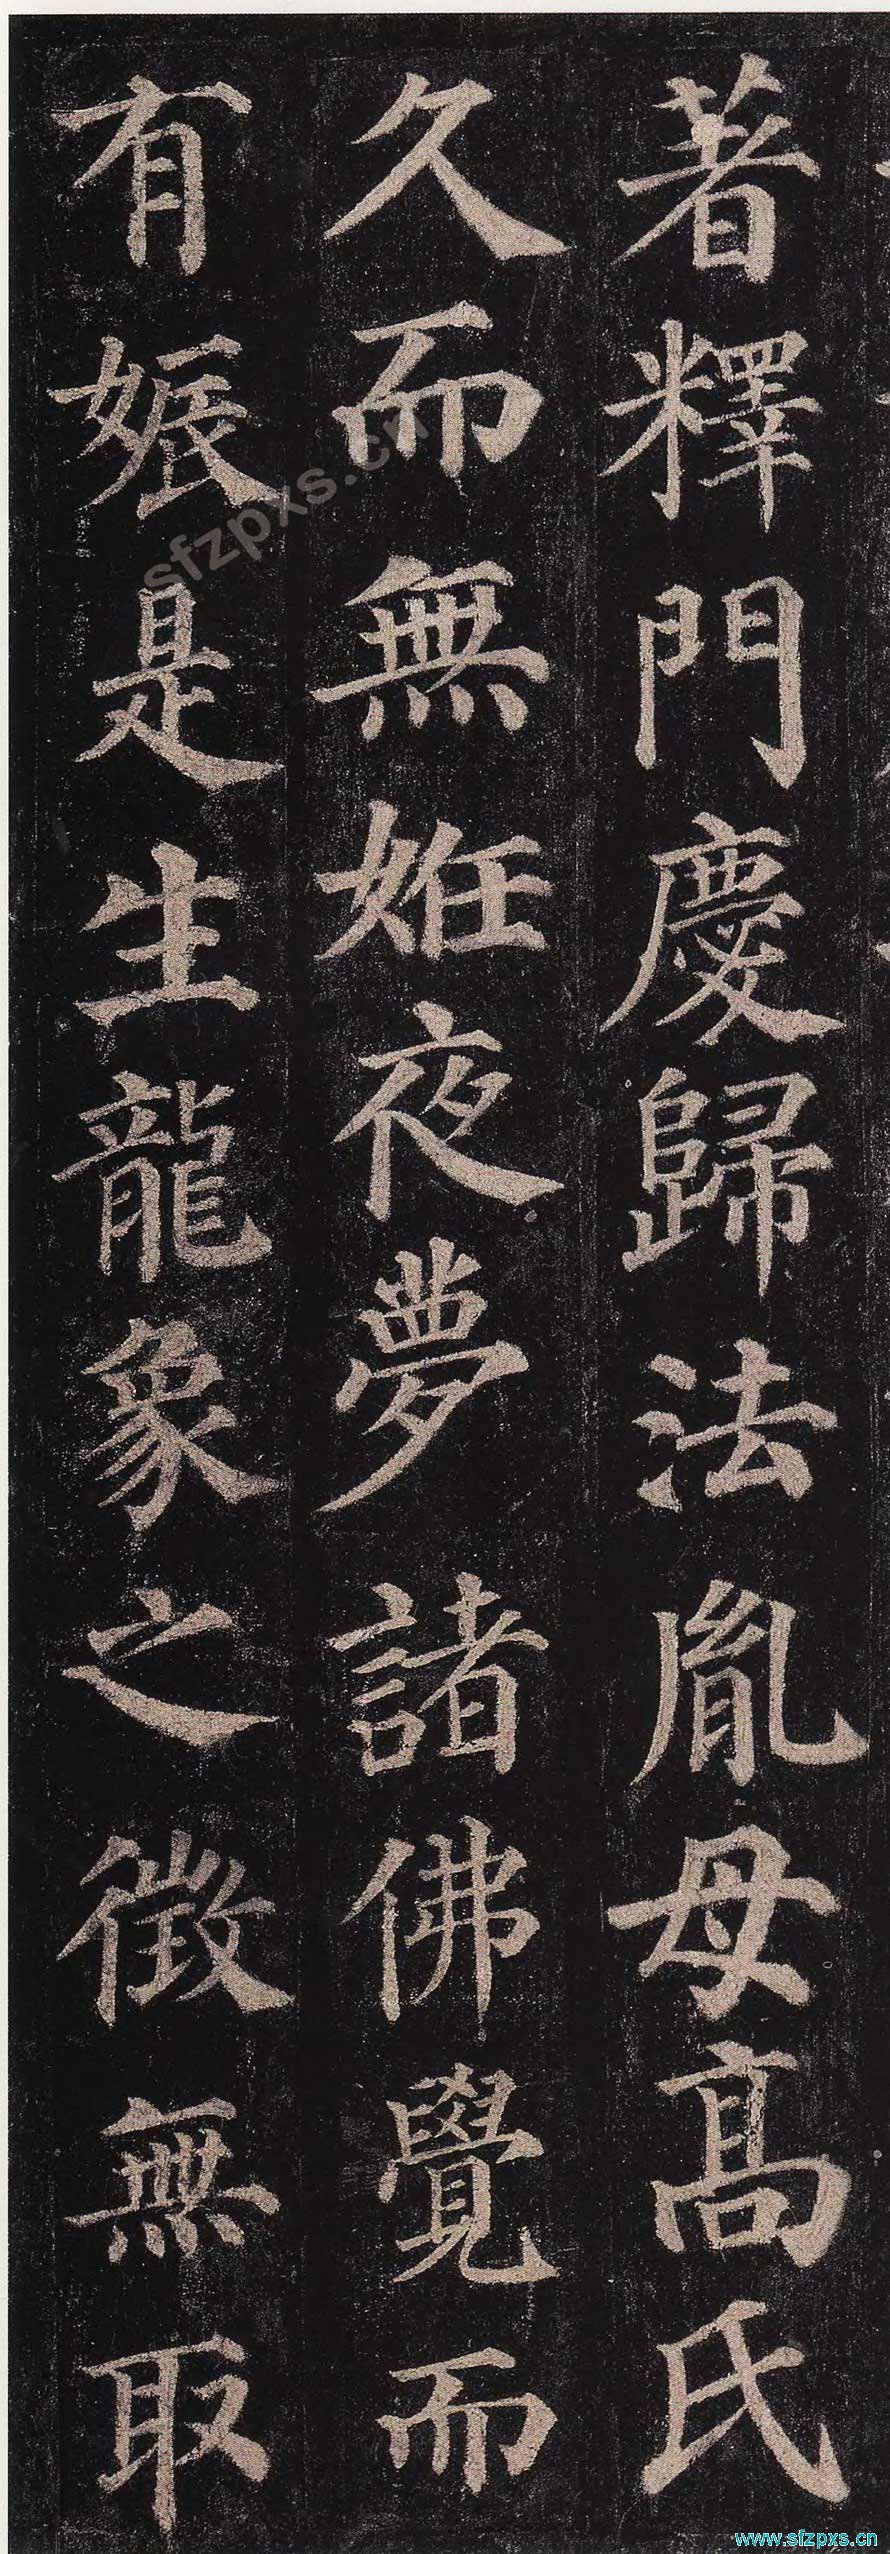 著釋門慶歸法胤母高氏
久而無姙夜夢諸佛覺而
有娠是生龍象之徵無取
sfzpxs.cn
www.sfzpxs.cn